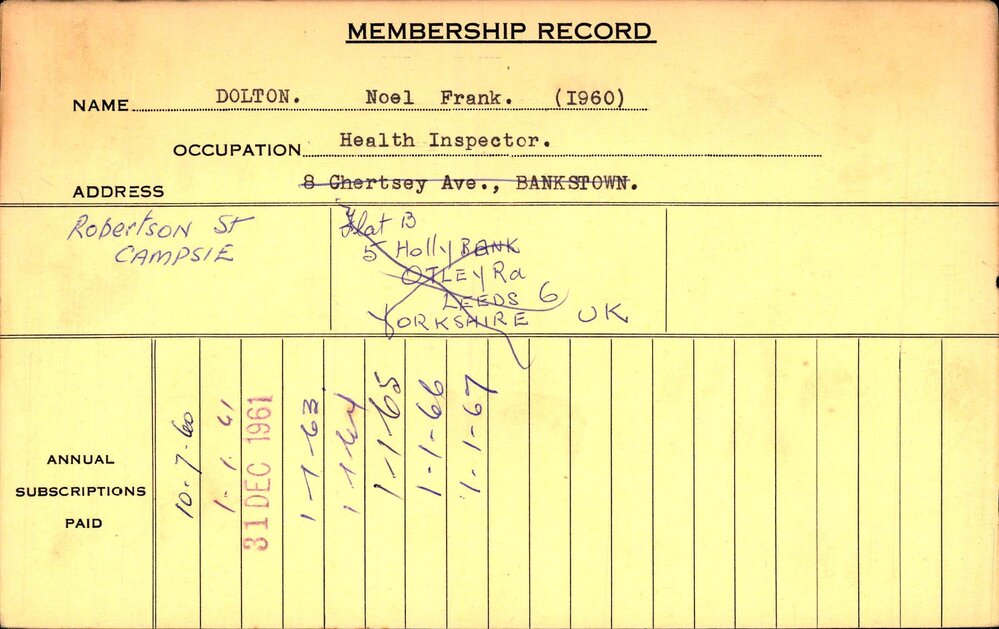 MEMBERSHIP RECORD
NAME DOLTON. Noel Frank. (I960)
OCCUPATION Health Inspector.
ADDRESS 8 Chertsey Ave., BANKSTOWN.
Robertson St
CAMPSIE
Flat B
5 Holly BANK
OTLEY Rd
LEEDS 6
YORKSHIRE UK
ANNUAL
SUBSCRIPTIONS
PAID
10-7-60
1-1-61
31 DEC 1961
1-1-63
1-1-64
1-1-65
1-1-66
1-1-67